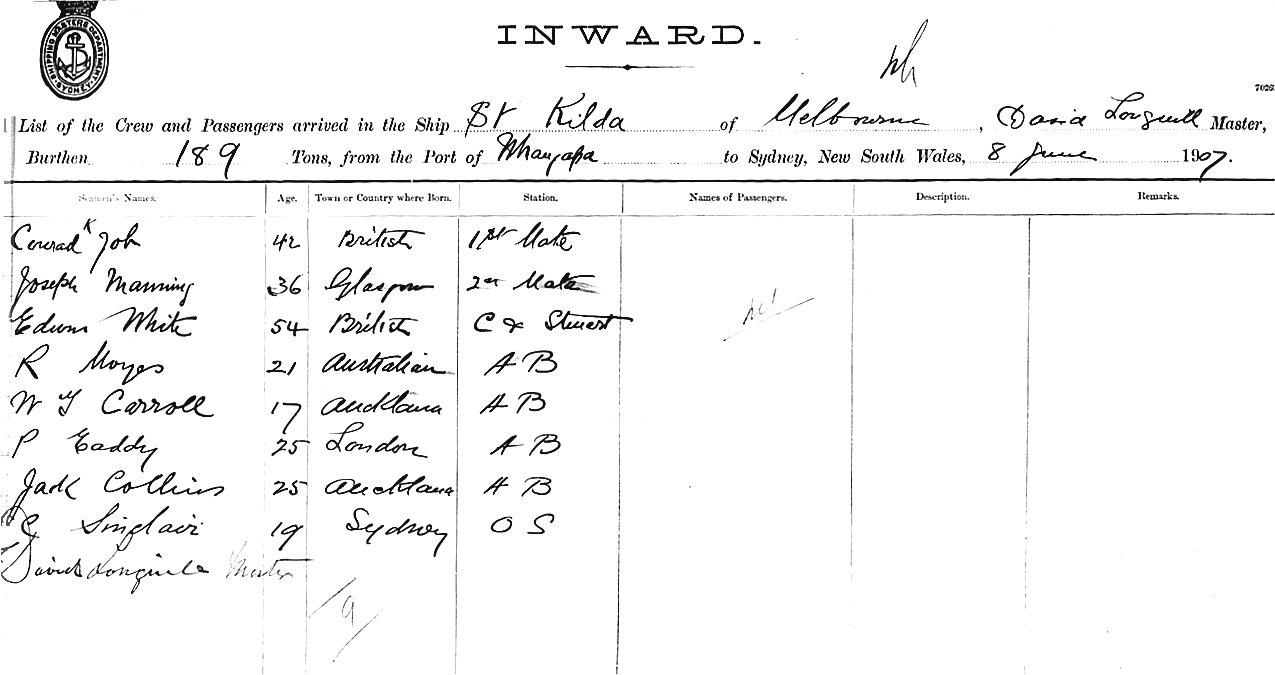 SHIPPING MASTERS DEPARTMENT SYDNEY
INWARD.
7026
List of the Crew and Passengers arrived in the Ship St Kilda of Melbourne, David Longuill Master,
Burthen 189 Tons, from the Port of Whangapa to Sydney, New South Wales, 8 June 1907.
Seamen's Names. Age. Town or Country where Born. Station. Names of Passengers. Description. Remarks.
Conrad K Job 42 British 1st Mate
Joseph Manning 36 Glasgow 2nd Mate
Edwin White 54 British C & Stuert
R Moyes 21 Australian A B
W J Carroll 17 Auckland A B
P Eaddy 25 London A B
Jack Collins 25 Auckland A B
C Sinclair 19 Sydney O S
David Longuile Master
9